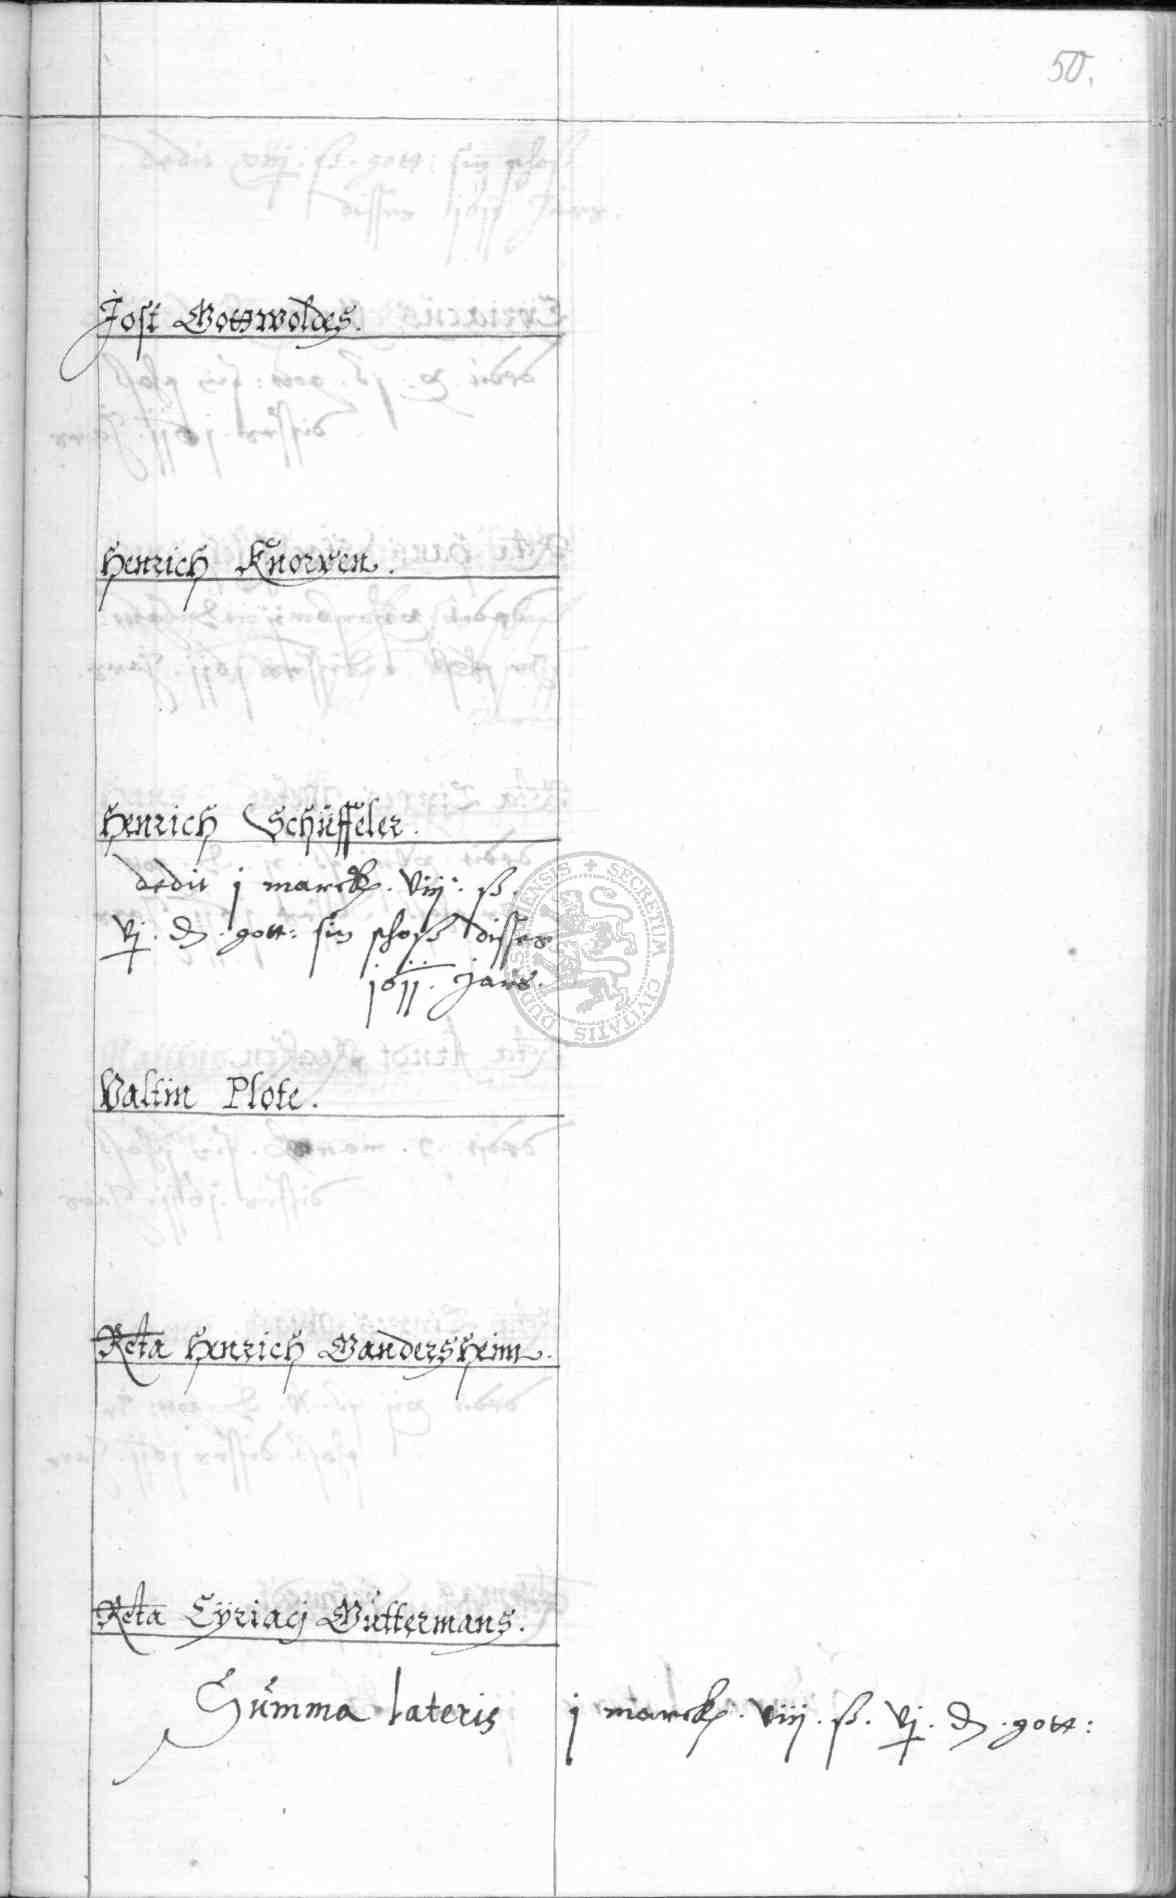 50.
Jost Gottwoldes.
Henrich Knorren.
Henrich Schüffeler.
dedit j marck. viij. ß.
vj. d. gott: sin schoß disses
jars.
Valtin Plote.
Rcta Henrich Gandersheim.
Rcta Cÿriacj Güttermans.
Sümma lateris j marck. viij. ß. vj. d. gott:
SECRETUM CIVITATIS